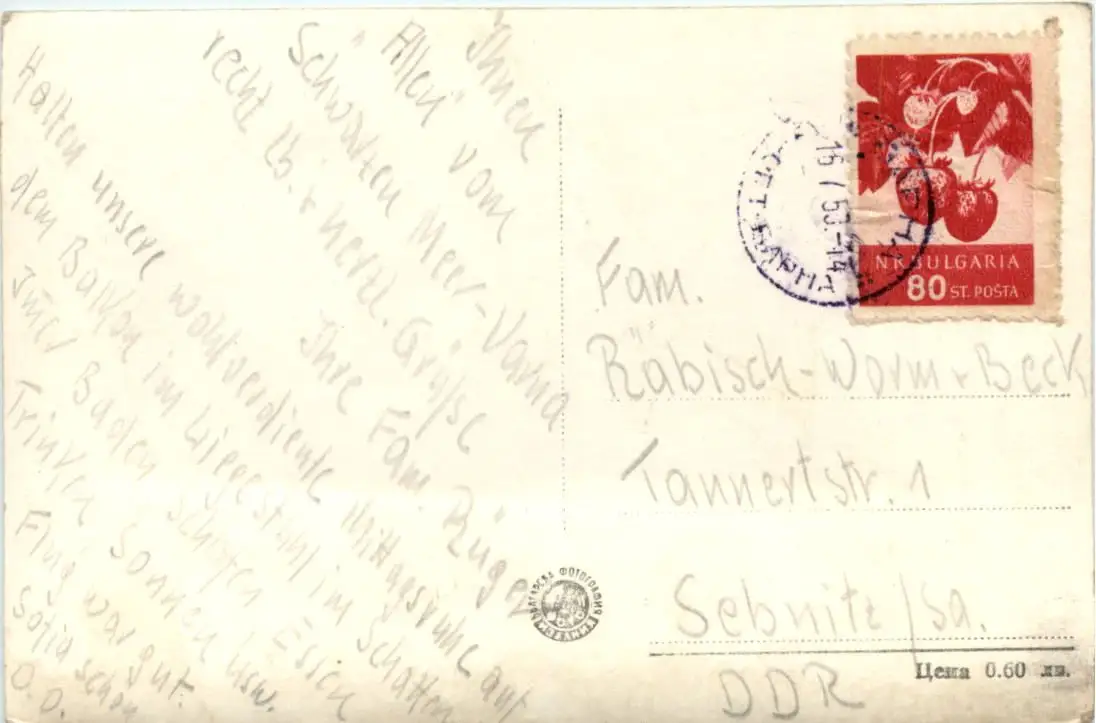 Ihnen
Allen vom
Schwarzen Meer-Varna
recht lb. + herzl. Grüsse
Ihre Fam. Rüger
Halten unsere wohlverdiente Mittagsruhe auf
dem Balkon im Liegestuhl im Schatten
Immer Baden Schlafen Essen
Trinken Sonnen usw.
Flug war gut.
Sofia schon
O.O.
Fam.
Räbisch-Worm + Beck
Tannertstr. 1
Sebnitz/Sa.
DDR
NR BULGARIA
80 ST. POŠTA
ВАРНА
ВАРНА
БЪЛГАРСКА ФОТОГРАФИЯ
ИЗДАНИЕ
Цена 0.60 лв.